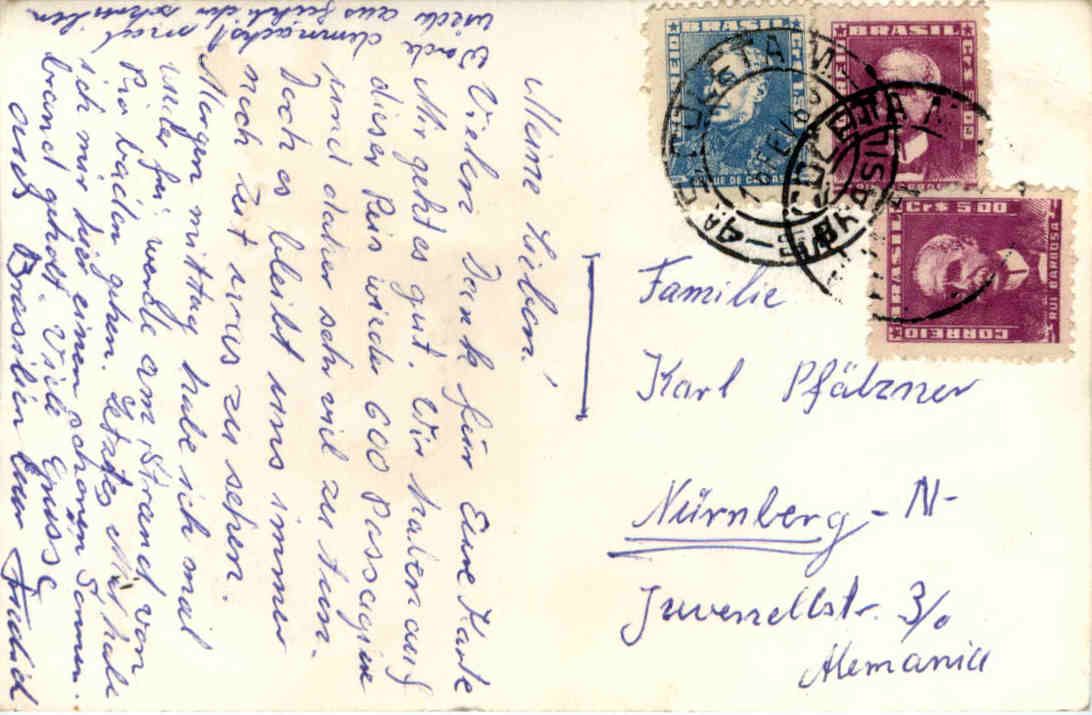 Meine Lieben!
Vielen Dank für Eure Karte
Mir geht es gut. Wir haben auf
dieser Reise wieder 600 Passagiere
und daher sehr viel zu tun.
Doch es bleibt uns immer
noch Zeit etwas zu sehen.
Morgen mittag habe ich mal
wieder frei, werde am Strand von
Rio baden gehen. Letztes Mal habe
ich mir hier einen schönen Sonnen-
brand geholt. Viele Grüsse
aus Brasilien Euer
Werde demnächst mal
wieder aus schreiben
Familie
Karl Pfälzner
Nürnberg - N-
Juvenellstr. 3/0
Alemania
BRASIL
CORREIO
DUQUE DE CAXIAS
BRASIL
CORREIO
RUI BARBOSA
Cr$ 5,00
BRASIL
CORREIO
RUI BARBOSA
BRASIL